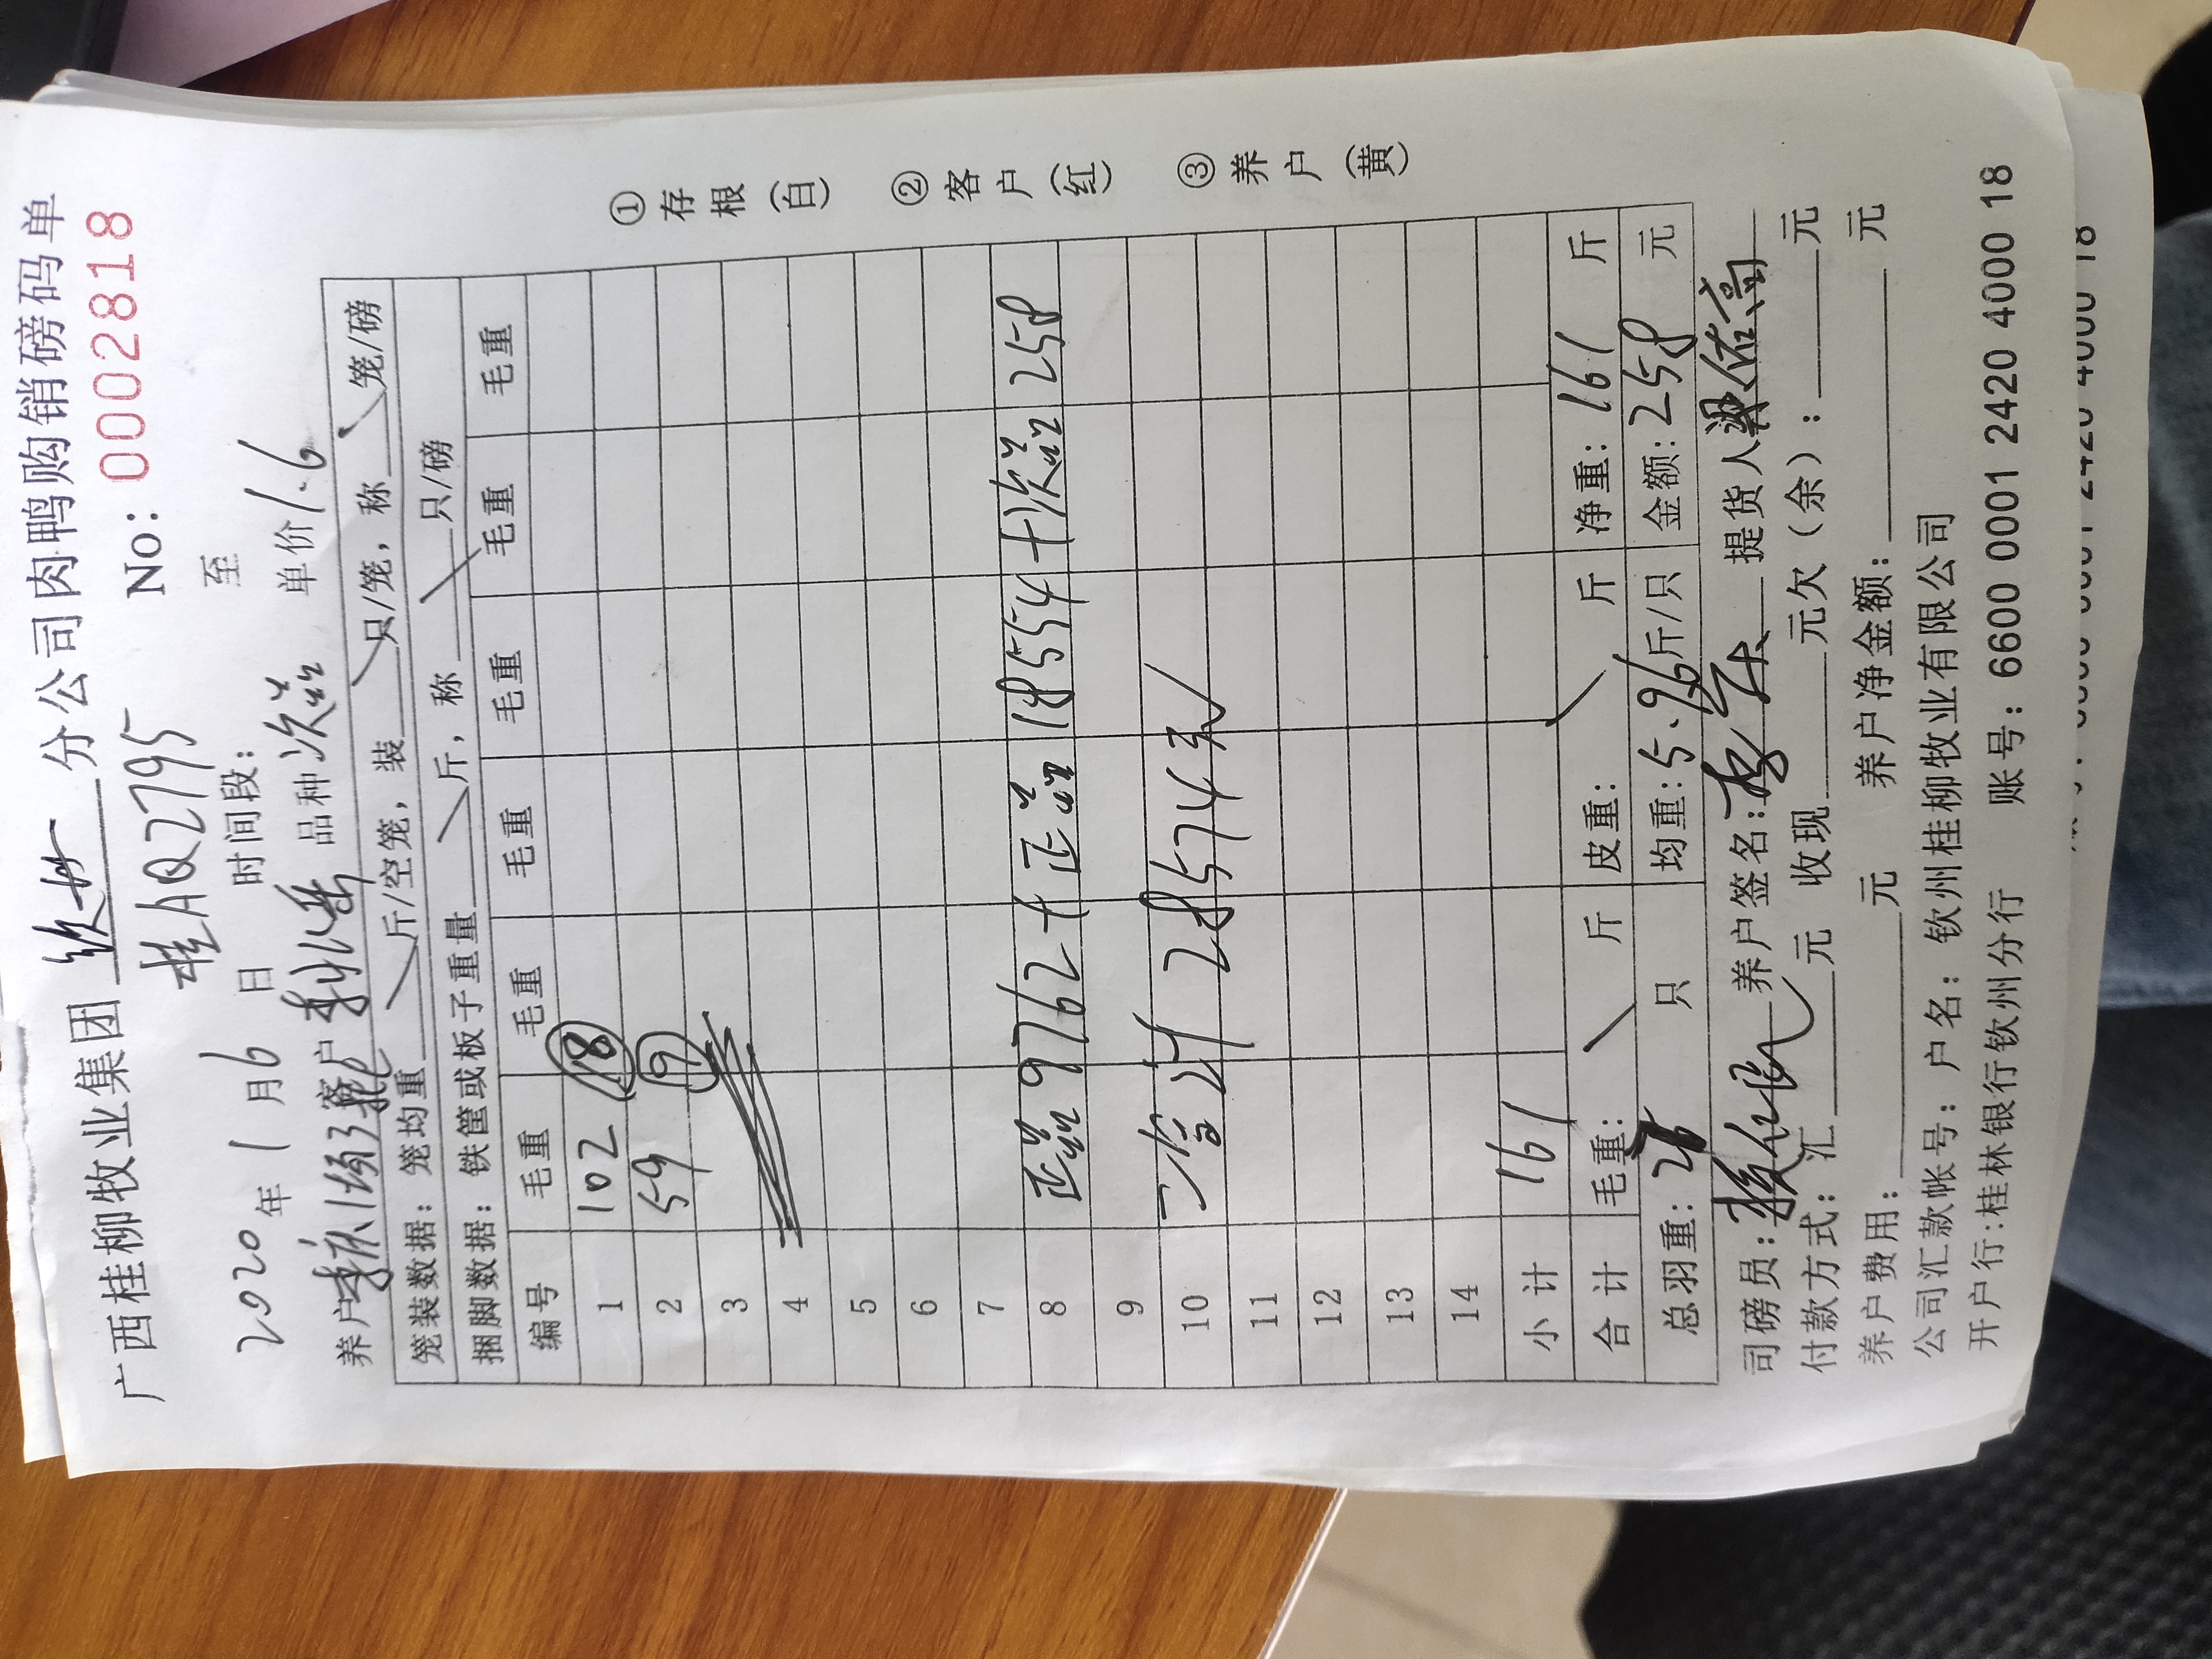 广西桂柳牧业集团 钦州 分公司肉鸭购销磅码单
桂AQ2795 No: 0002818
2020年 1 月 6 日 时间段: 至
养户 客户 品种 次益 单价 1.6
笼装数据: 笼均重 斤/空笼, 装 只/笼, 称 笼/磅
捆脚数据: 铁筐或板子重量 斤, 称 只/磅
编号 毛重 毛重 毛重 毛重 毛重 毛重 毛重
1 102 18
2 59 9
3
4
5
6
7
8 正益 9762 + 正益 18554 + 次益 258
9
10 二合计 28574元
11
12
13
14
小计 161
合计 毛重: 斤 皮重: 斤 净重: 161 斤
总羽重: 只 均重: 5.96 斤/只 金额: 258 元
司磅员: 养户签名: 提货人
付款方式: 汇 元 收现 元欠(余): 元
养户费用: 元 养户净金额: 元
公司汇款帐号: 户名: 钦州桂柳牧业有限公司
开户行:桂林银行钦州分行 账号: 6600 0001 2420 4000 18
①存根(白) ②客户(红) ③养户(黄)